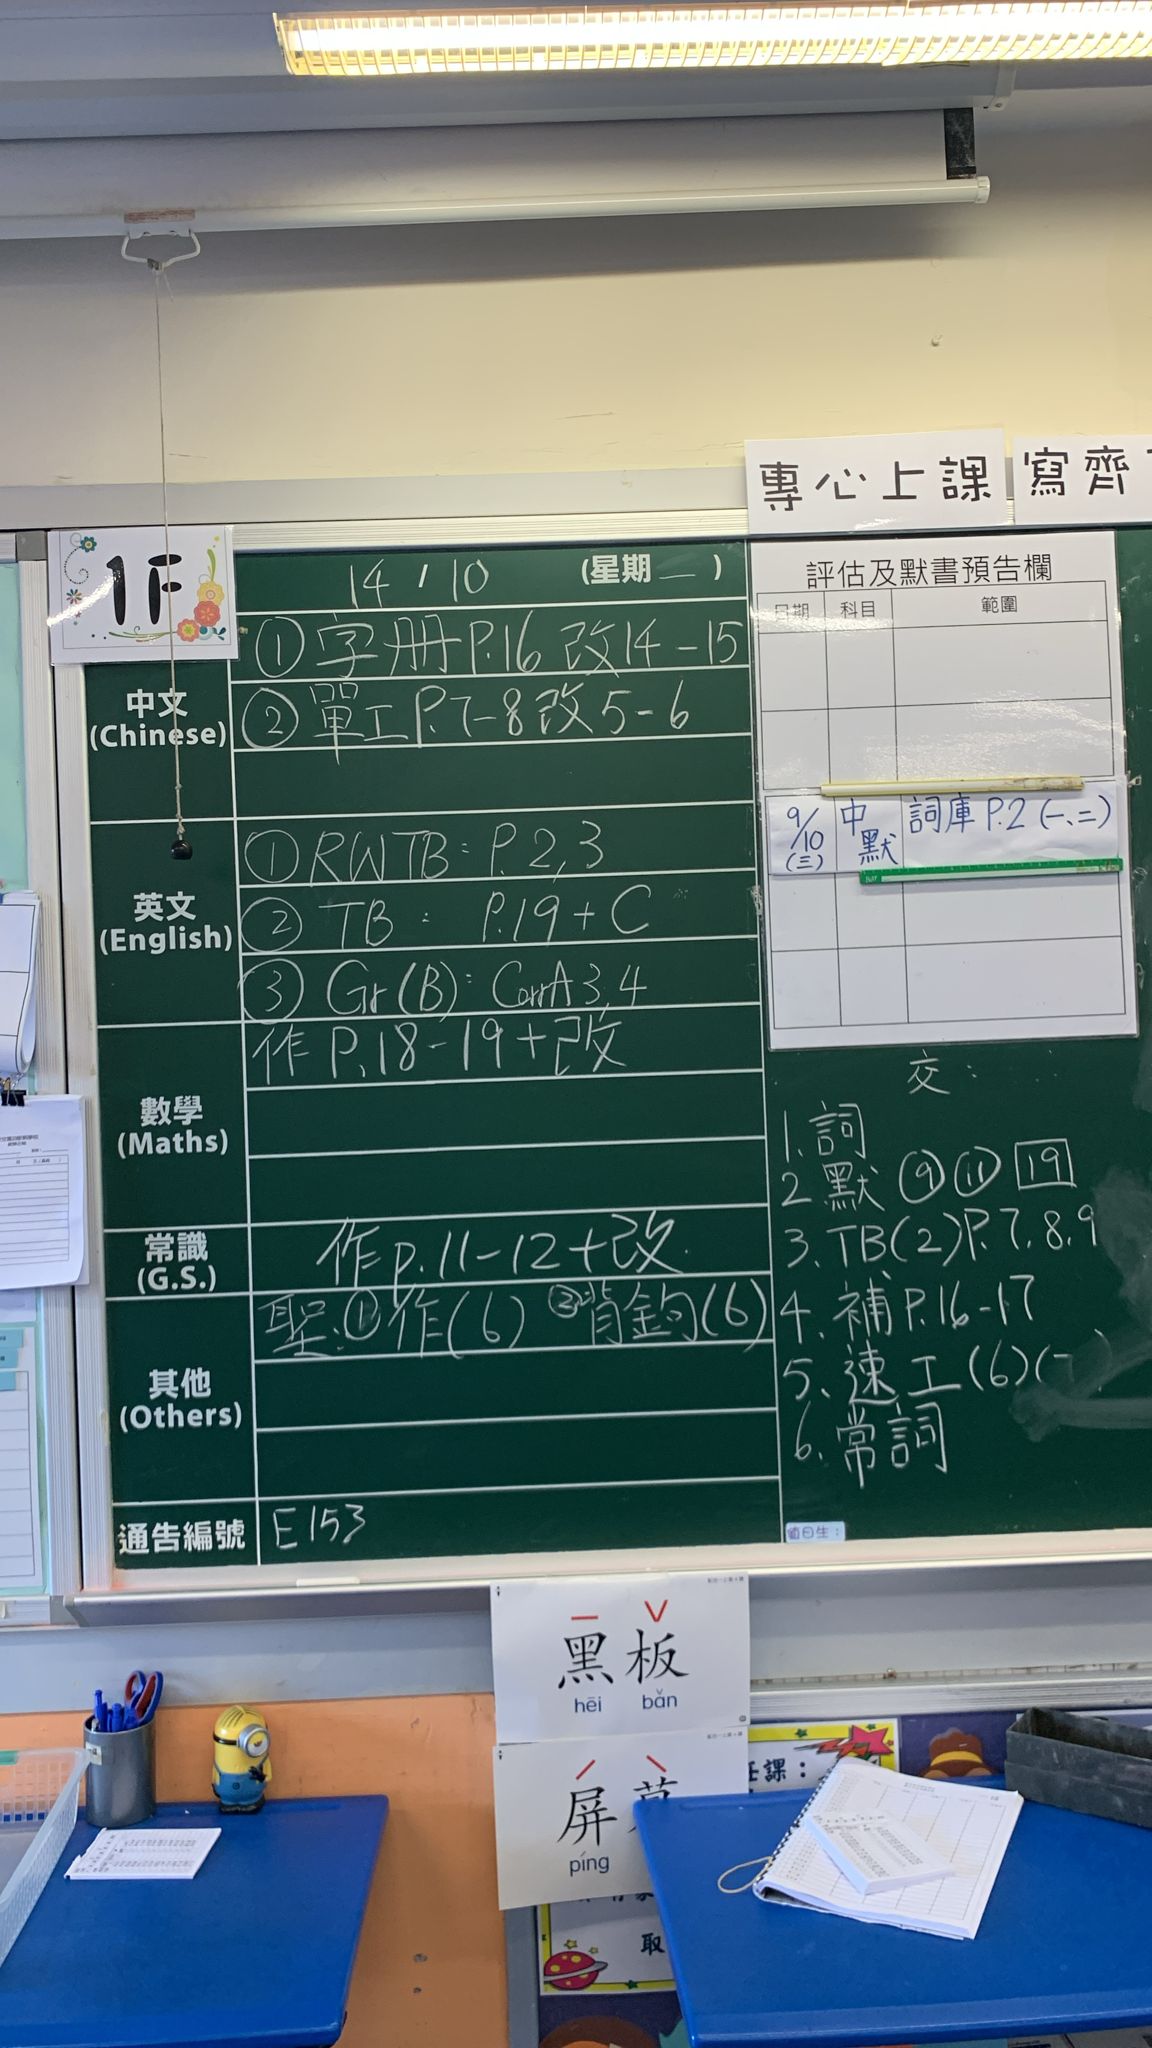 專心上課
寫齊
1F
14 / 10 (星期 一 )
中文
(Chinese)
① 字册 P.16 改14-15
② 單工 P.7-8 改5-6
英文
(English)
① RWTB: P.2,3
② TB: P.19 + C
③ Gr(B): CorrA 3,4
數學
(Maths)
作 P.18-19+改
常識
(G.S.)
作p.11-12+改
其他
(Others)
聖:①作(6) ②背鈎(6)
通告編號
E153
評估及默書預告欄
日期 科目 範圍
9/10 (三) 中默 詞庫 P.2 (一、二)
交:
1. 詞
2. 默 ⑨ ⑪ 19
3. TB(2)P.7,8,9
4. 補P.16-17
5. 速工(6)(一
6. 常詞
值日生:
黑板
hēi bǎn
屏
píng
任課:
取